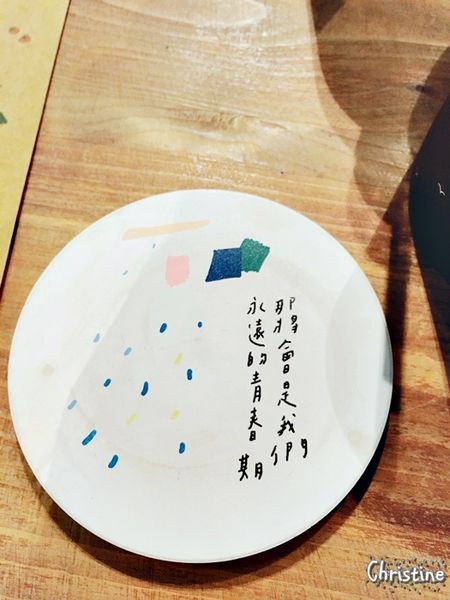 那將會是我們
永遠的青春期
Christine